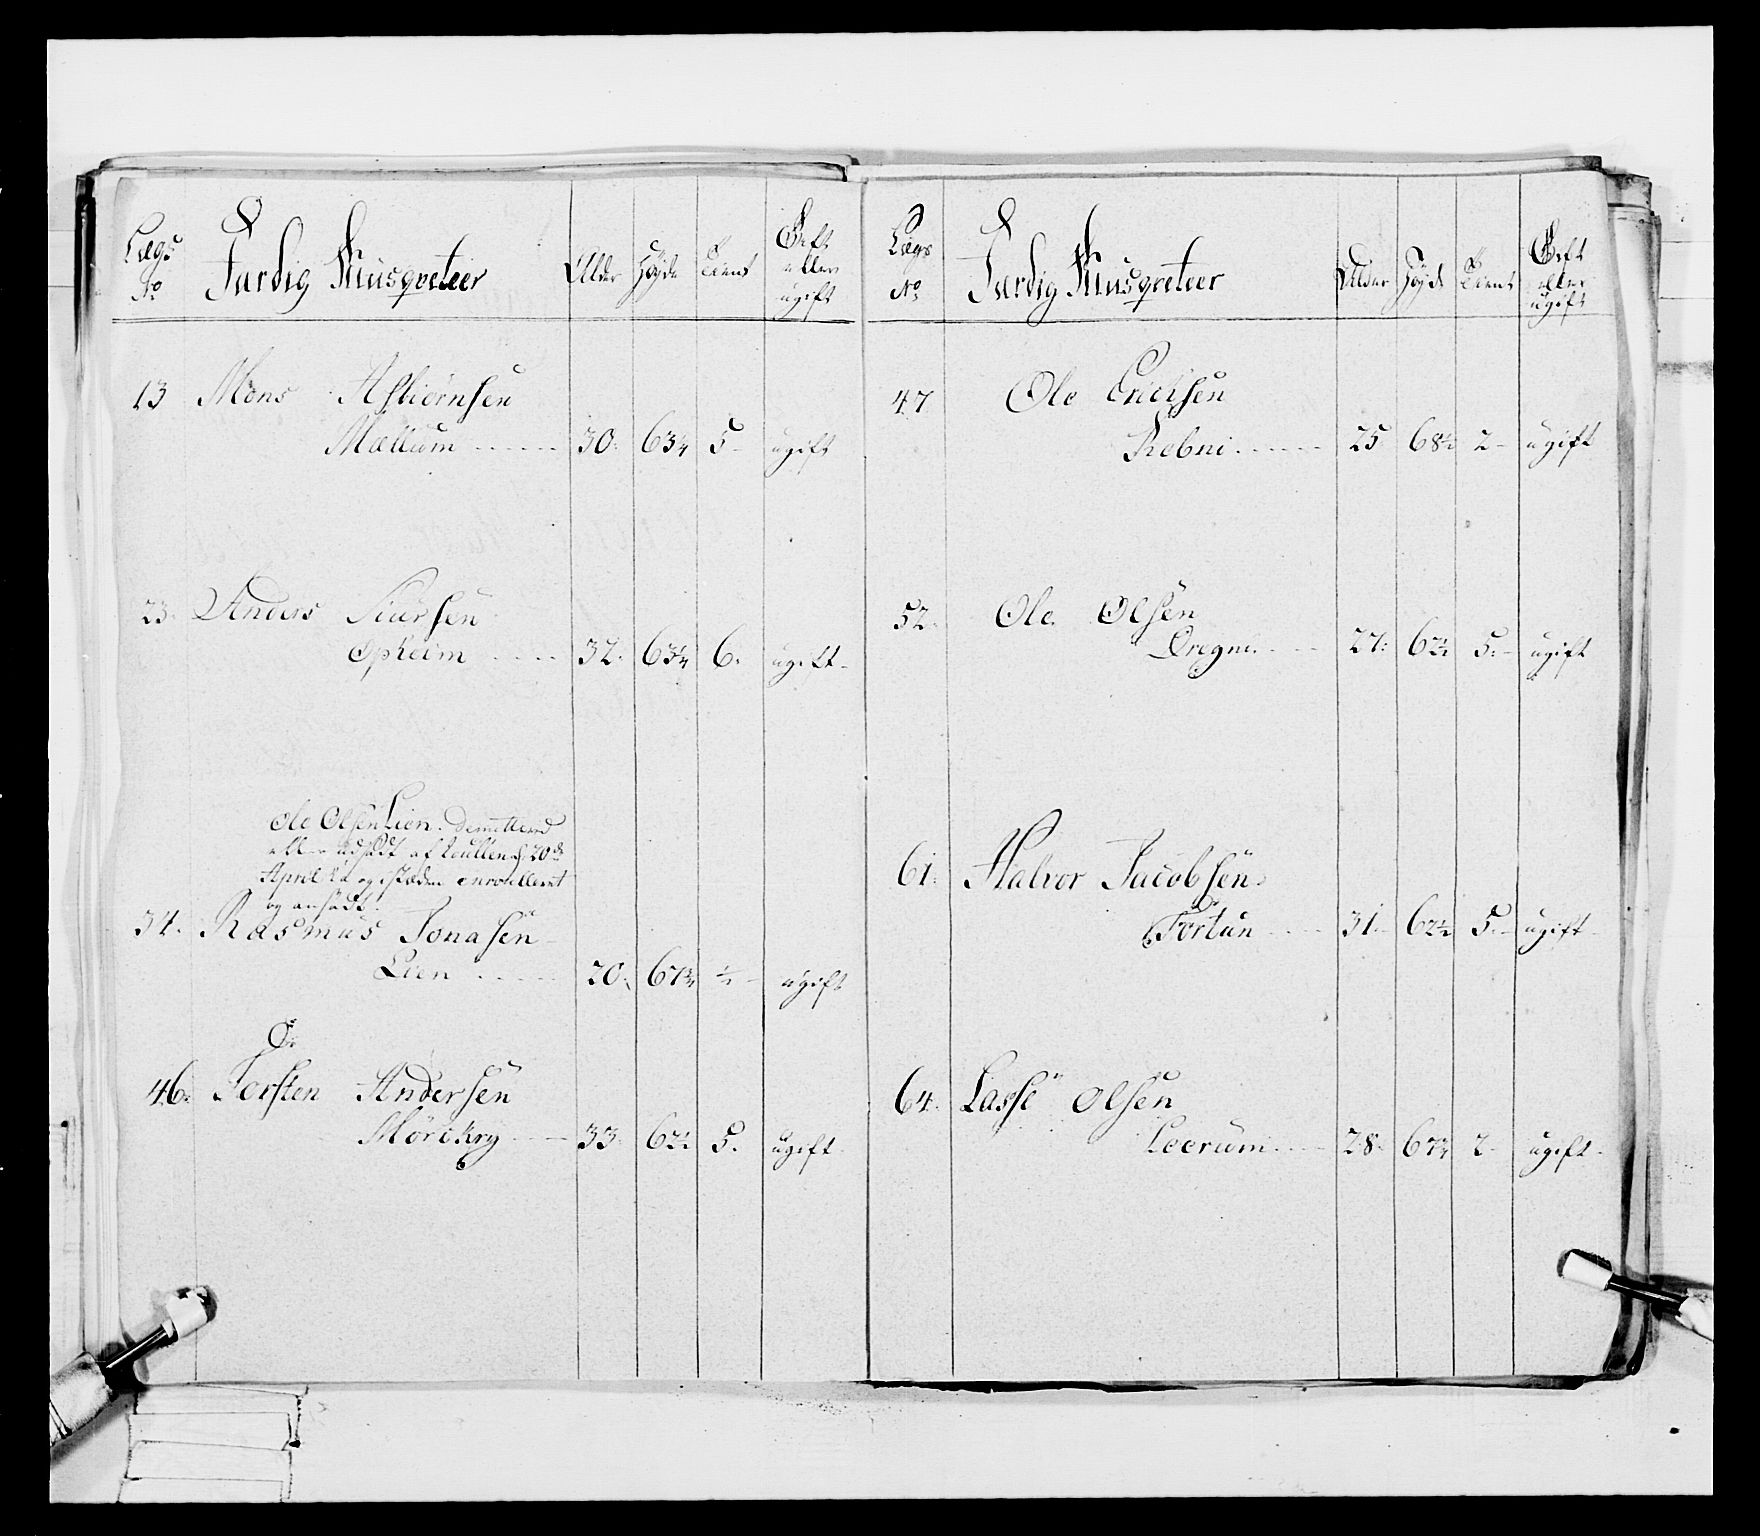 Lægs No Færdig Musqveteer Alder Høyde Tient Gift eller ugift
13 Mons Asbiørnsen
Mællum 30. 63¼ 5 ugift
23. Anders Siursen
Opheim 32. 63¼ 6. ugift
Ole Olsen Lien. Demitterd
eller udsadt af Roullen d: 20de
April og istæden enroulleret
og ansadt.
34. Rasmus Jonasen
Lien 20. 67¾ ½ ugift
46. Torsten Andersen
Mørckry 33. 62½ 5. ugift
Lægs No Færdig Musqveteer Alder Høyde Tient Gift eller ugift
47 Ole Erichsen
Rebni 25 68½ 2 ugift
52. Ole Olsen
Dregni 27. 62½ 5. ugift
61. Halvor Jacobsen
Fortun 31. 62½ 5. ugift
64. Lasse Olsen
Leerum 28. 67¼ 2 ugift